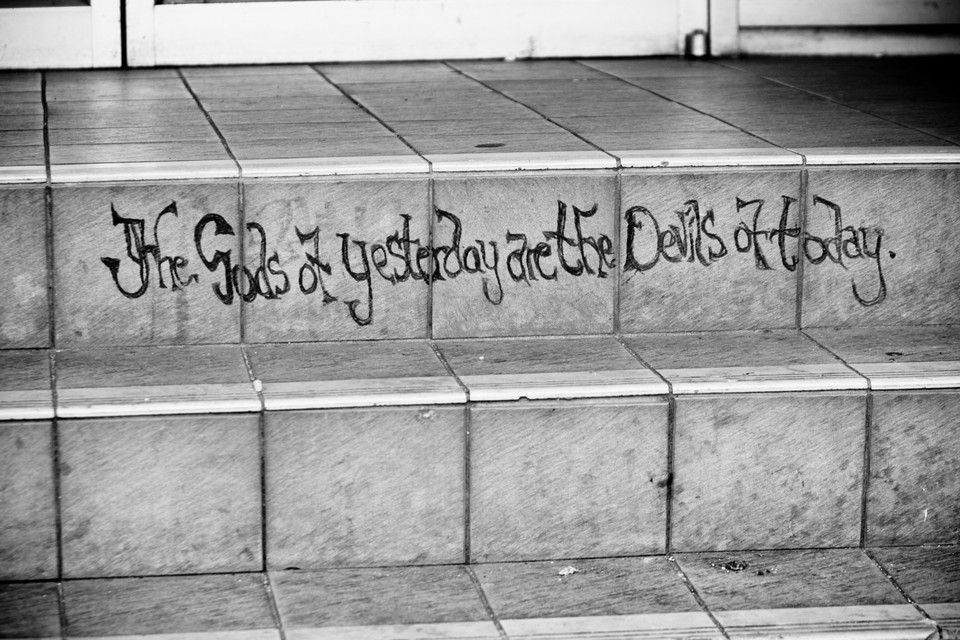 The Gods of yesterday are the Devils of today.